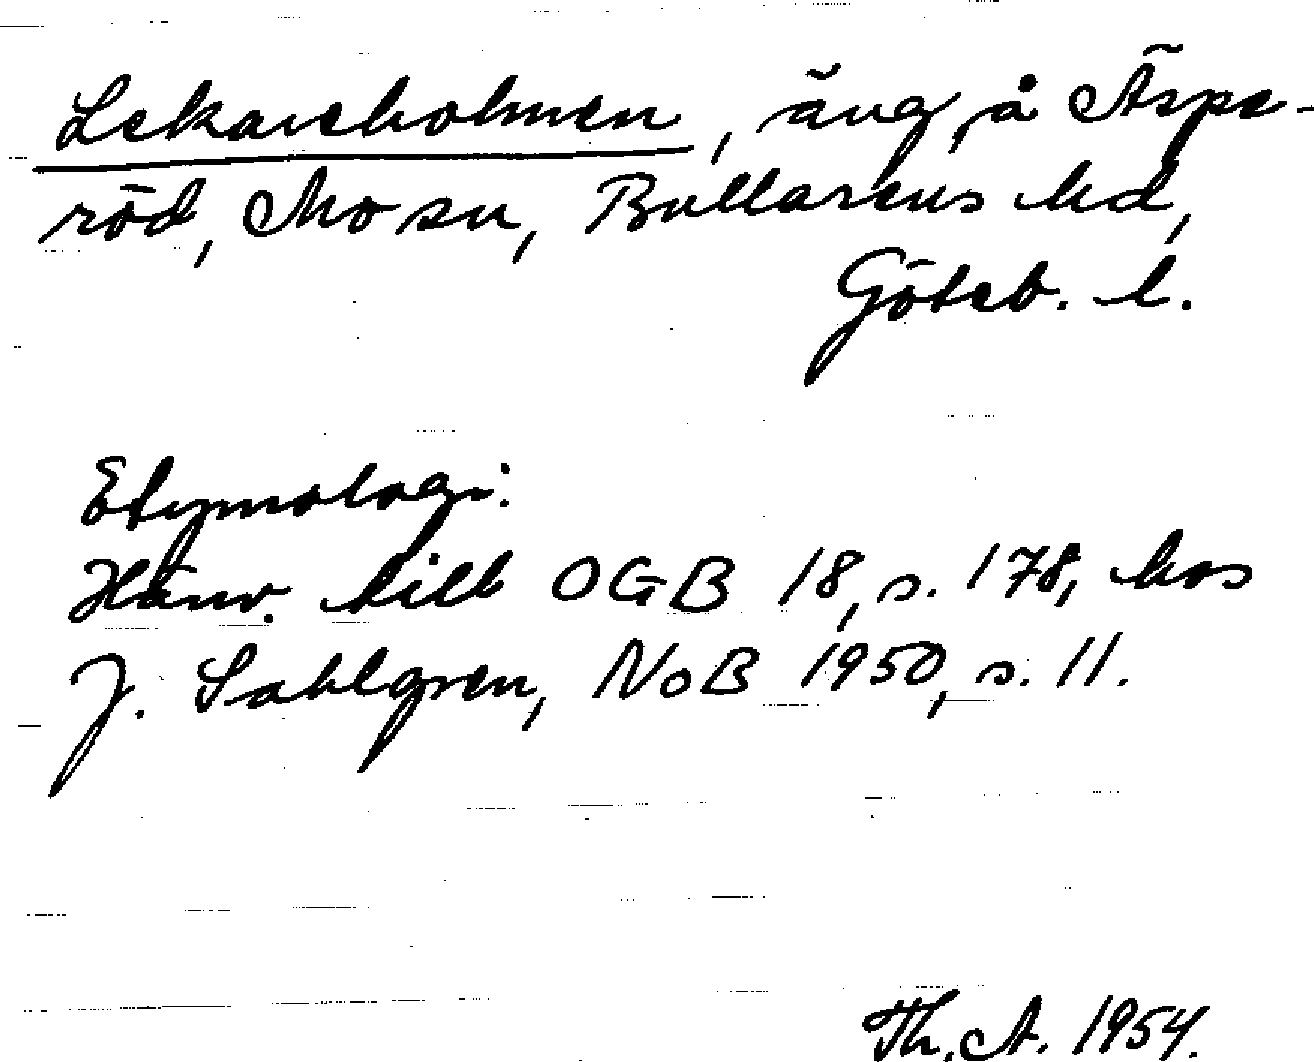 Lekareholmen, äng, å Äspe-
röd, Mo sn, Bullarens hd,
Göteb. l.
Etymologi:
Hänv. till OGB 18, s. 178, hos
J. Sahlgren, NoB 1950, s. 11.
Th. A. 1954.